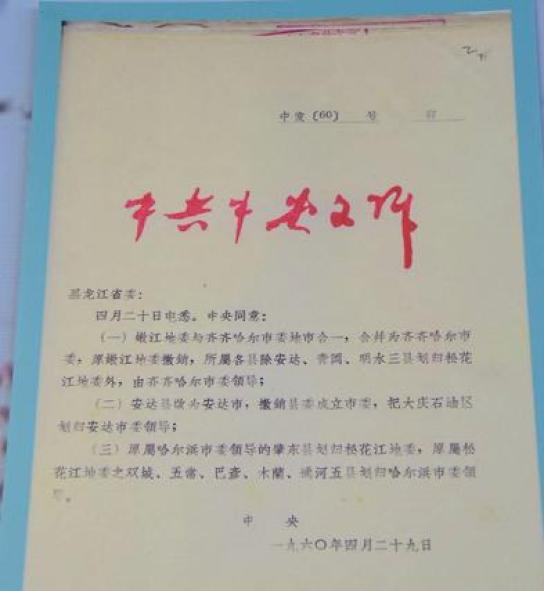 中发〔60〕 号
中共中央文件
黑龙江省委:
四月二十日电悉。中央同意:
(一)嫩江地委与齐齐哈尔市委地市合一,合并为齐齐哈尔市
委,原嫩江地委撤銷,所属各县除安达、青岡、明水三县划归松花
江地委外,由齐齐哈尔市委领导;
(二)安达县改为安达市,撤銷县委成立市委,把大庆石油区
划归安达市委领导;
(三)原属哈尔滨市委领导的肇东县划归松花江地委,原属松
花江地委之双城、五常、巴彦、木蘭、通河五县划归哈尔滨市委领
导。
中 央
一九六〇年四月二十九日